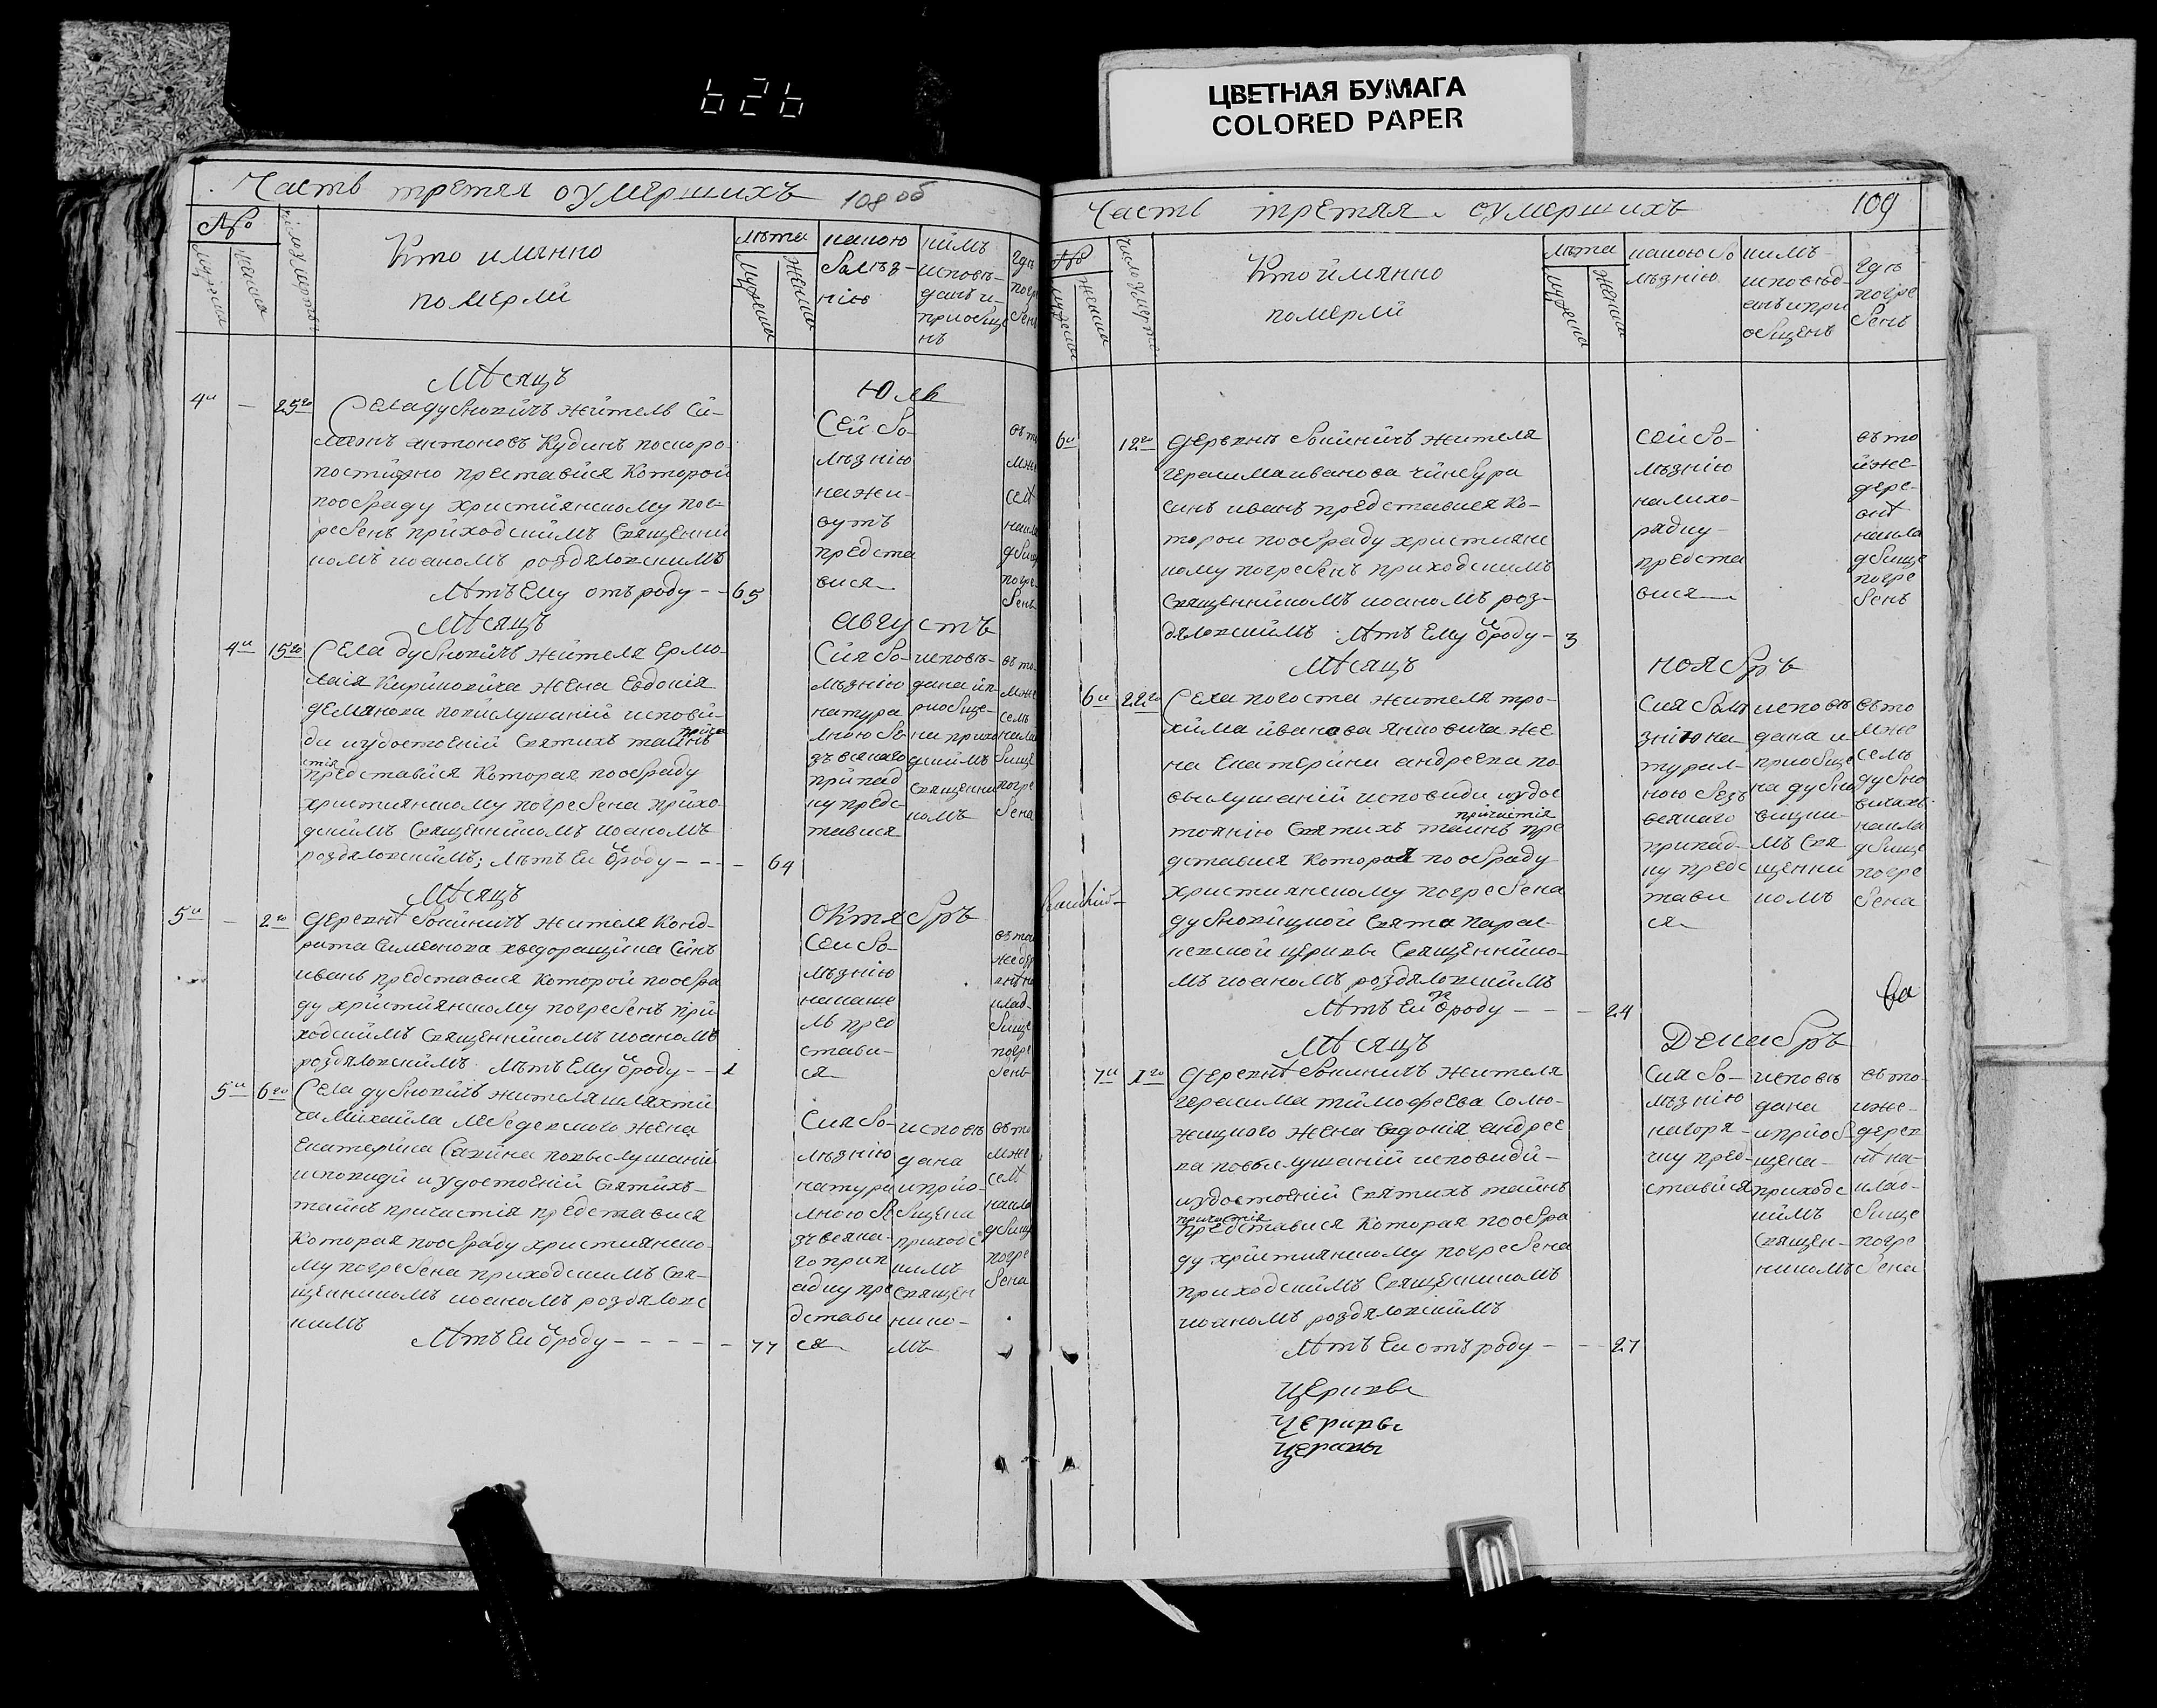 626
ЦВЕТНАЯ БУМАГА
COLORED PAPER
Часть третяя оумершихъ 108 об
№
мужеска
женска
Кто имянно
померли
лѣта
мужеска
женска
какою
болѣз-
нію
кимъ
исповѣ-
данъ и
приобще
нъ
гдѣ
погре
бенъ
Мѣсяцъ
Юль
4й — 25го
Села дубновичъ жителъ Си-
меонъ антоновъ Кудинъ поскоро
постижно преставися Которой
по обраду християнскому пог-
ребенъ приходскимъ Священни
комъ иоаномъ роздяловскимъ
Лѣтъ Ему отъ роду - - 65
Сей бо-
лѣзнію
на жи-
вутъ
предста
вися
погре
бенъ
Мѣсяцъ
августъ
4й 15го
Села дубновичъ жителя Ермо-
лаія Кириковича жена Евдокія
демянова повислушаніи испови-
ди иудостоеніи святихъ таинъ прича
стія
представися Которая пообраду
християнскому погребена прихо-
дскимъ Священникомъ иоаномъ
роздяловскимъ; Лѣтъ Еи ѿроду - - - 64
Сия бо-
лѣзнію
натура
лною бе
зъ всякаго
припад
ку предс-
тавися
исповѣ-
дана ип-
риобще-
на прихо
дскимъ
священни
комъ
въ то
мже
селѣ
накла
бище
погре
бена
Мѣсяцъ
октябръ
5й — 2го
деревнѣ бокиничъ жителя Конд-
рата Симеонова хведоращина Синъ
иванъ представися Которой пообра
ду християнскому погребенъ при
ходскимъ священникомъ иоаномъ
роздяловскимъ. Лѣтъ Ему ѿроду - - 1
Сеи бо-
лѣзнію
на каше
лъ пред
стави-
ся
бище
погре
бенъ
5й 6го
Села дубновичъ жителя шляхти
ча Михайла лебедевского жена
Екатерина Савина повыслушаніи
исповиди и удостоеніи святихъ
таинъ причистія представися
Которая пообраду християнско
му погребена приходскимъ свя-
щенникомъ иоаномъ роздяловс
кимъ
Лѣтъ Еи ѿроду - - - - - 77
Сия бо-
лѣзнію
натура
лною бе
зъ всяка-
го прип
адку пре
дстави
ся
исповѣ
дана
и прио-
бщена
приходс
кимъ
священ
нико-
мъ
въ то
мже
селѣ
накла
дбище
погре
бена
Часть третяя оумершихъ 109
№
мужеска
женска
число умертв
Кто имянно
померли
лѣта
мужеска
женска
какою бо
лѣзнію
кимъ
исповѣд
анъ и при
общенъ
гдѣ
погре
бенъ
6й 12го
деревнѣ бокиничъ жителя
герасима иванова чинчура
синъ иванъ представися Ко-
торои пообраду християнс
кому погребенъ приходскимъ
священникомъ иоаномъ роз-
дяловскимъ Лѣтъ Ему ѿроду - 3
сей бо-
лѣзнію
на лихо-
радку
предста
вися
въ то
йже
дере-
внѣ
накла
дбище
погре
бенъ
Мѣсяцъ
ноябръ
6й 22го
Села погоста жителя тро-
хима иванова янковича же
на Екатерини андреева по
выслушаній исповиди иудос
тоянію святихъ таинъ пре
причистія
дставися Которая пообраду
християнскому погребена
дубновицкой свята парас-
кевской церкви священнико-
мъ иоаномъ роздяловскимъ
Лѣтъ Еи ѿроду - - - 24
Сия болѣ
знію на
турал-
ною безъ
всякаго
припад-
ку предс
тави
ся
исповѣ
дана и
приобще
на дубно
вицки-
мъ свя
щенни
комъ
въ то
мже
селѣ
дубно
вичахъ
накла
дбище
погре
бена
Мѣсяцъ
Декабръ
7й 1го
деревнѣ бокиничъ жителя
герасима тимофеева Солю-
жицкого жена Евдокія андрее
ва повыслушаній исповиди-
иудостоеній святихъ таинъ
причистія
представися Которая пообра
ду християнскому погребена
приходскимъ священникомъ
иоаномъ роздяловскимъ
Лѣтъ Еи отъ роду - - - 27
Сия бо-
лѣзнію
на горя-
чку пред-
ставися
исповѣ
дана
и приоб-
щена
приходс
кимъ
священ-
никомъ
въ то
йже
дерев
нѣ на-
клад-
бище
погре
бена
Церкви
Церкви
Церкви